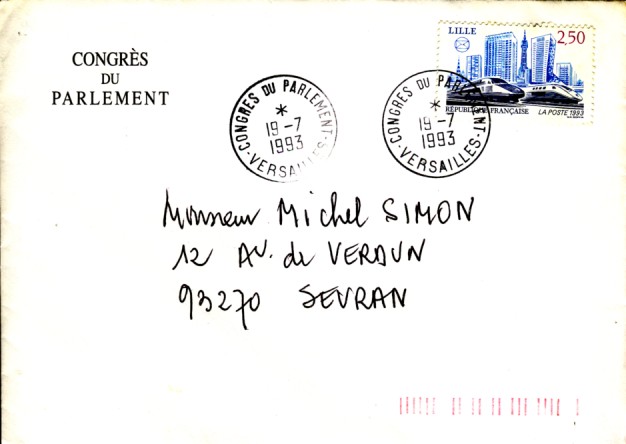 CONGRÈS
DU
PARLEMENT
CONGRES DU PARLEMENT
*
19-7
1993
-VERSAILLES-
CONGRES DU PARLEMENT
*
19-7
1993
-VERSAILLES-
LILLE
2,50
RÉPUBLIQUE FRANÇAISE
LA POSTE 1993
Monsieur Michel SIMON
12 AV. de VERDUN
93270 SEVRAN